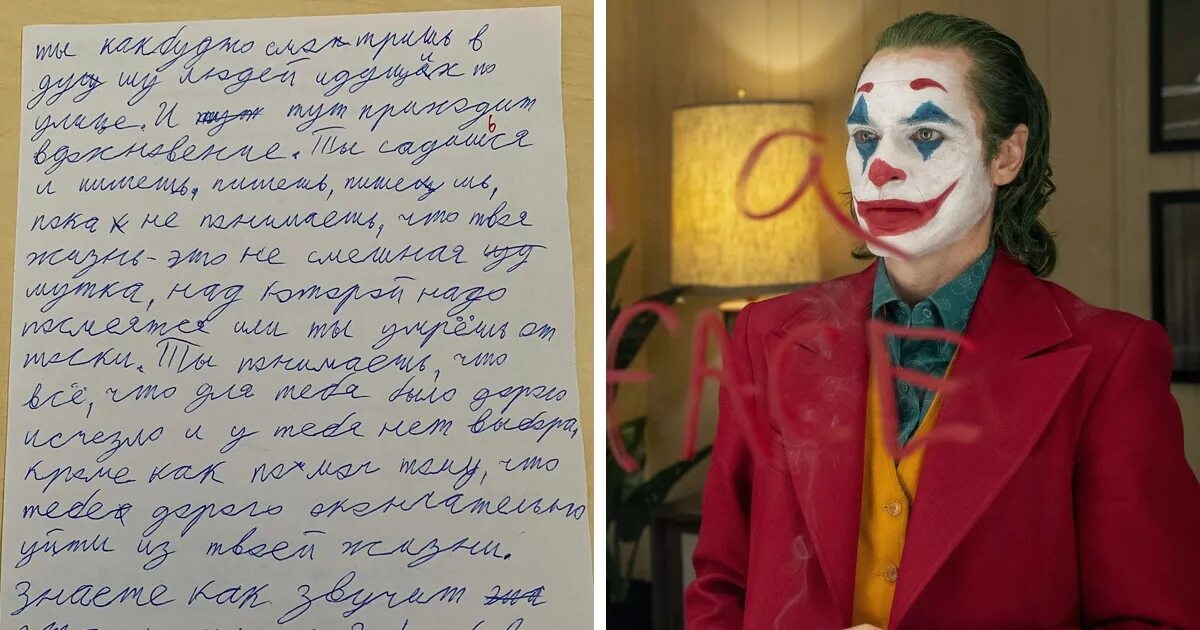 ты какбудто смотришь в
душу людей идущих по
улице. И тут приходит
вдохновение. Ты садишься
и пишешь, пишешь, пишешь,
пока не понимаешь, что твоя
жизнь - это не смешная
шутка, над которой надо
посмеятся или ты умрёшь от
тоски. Ты понимаешь, что
всё, что для тебя было дорого
исчезло и у тебя нет выбора,
кроме как помоч тому, что
тебе дорого окончательно
уйти из твоей жизни.
Знаете как звучит
a
FACE